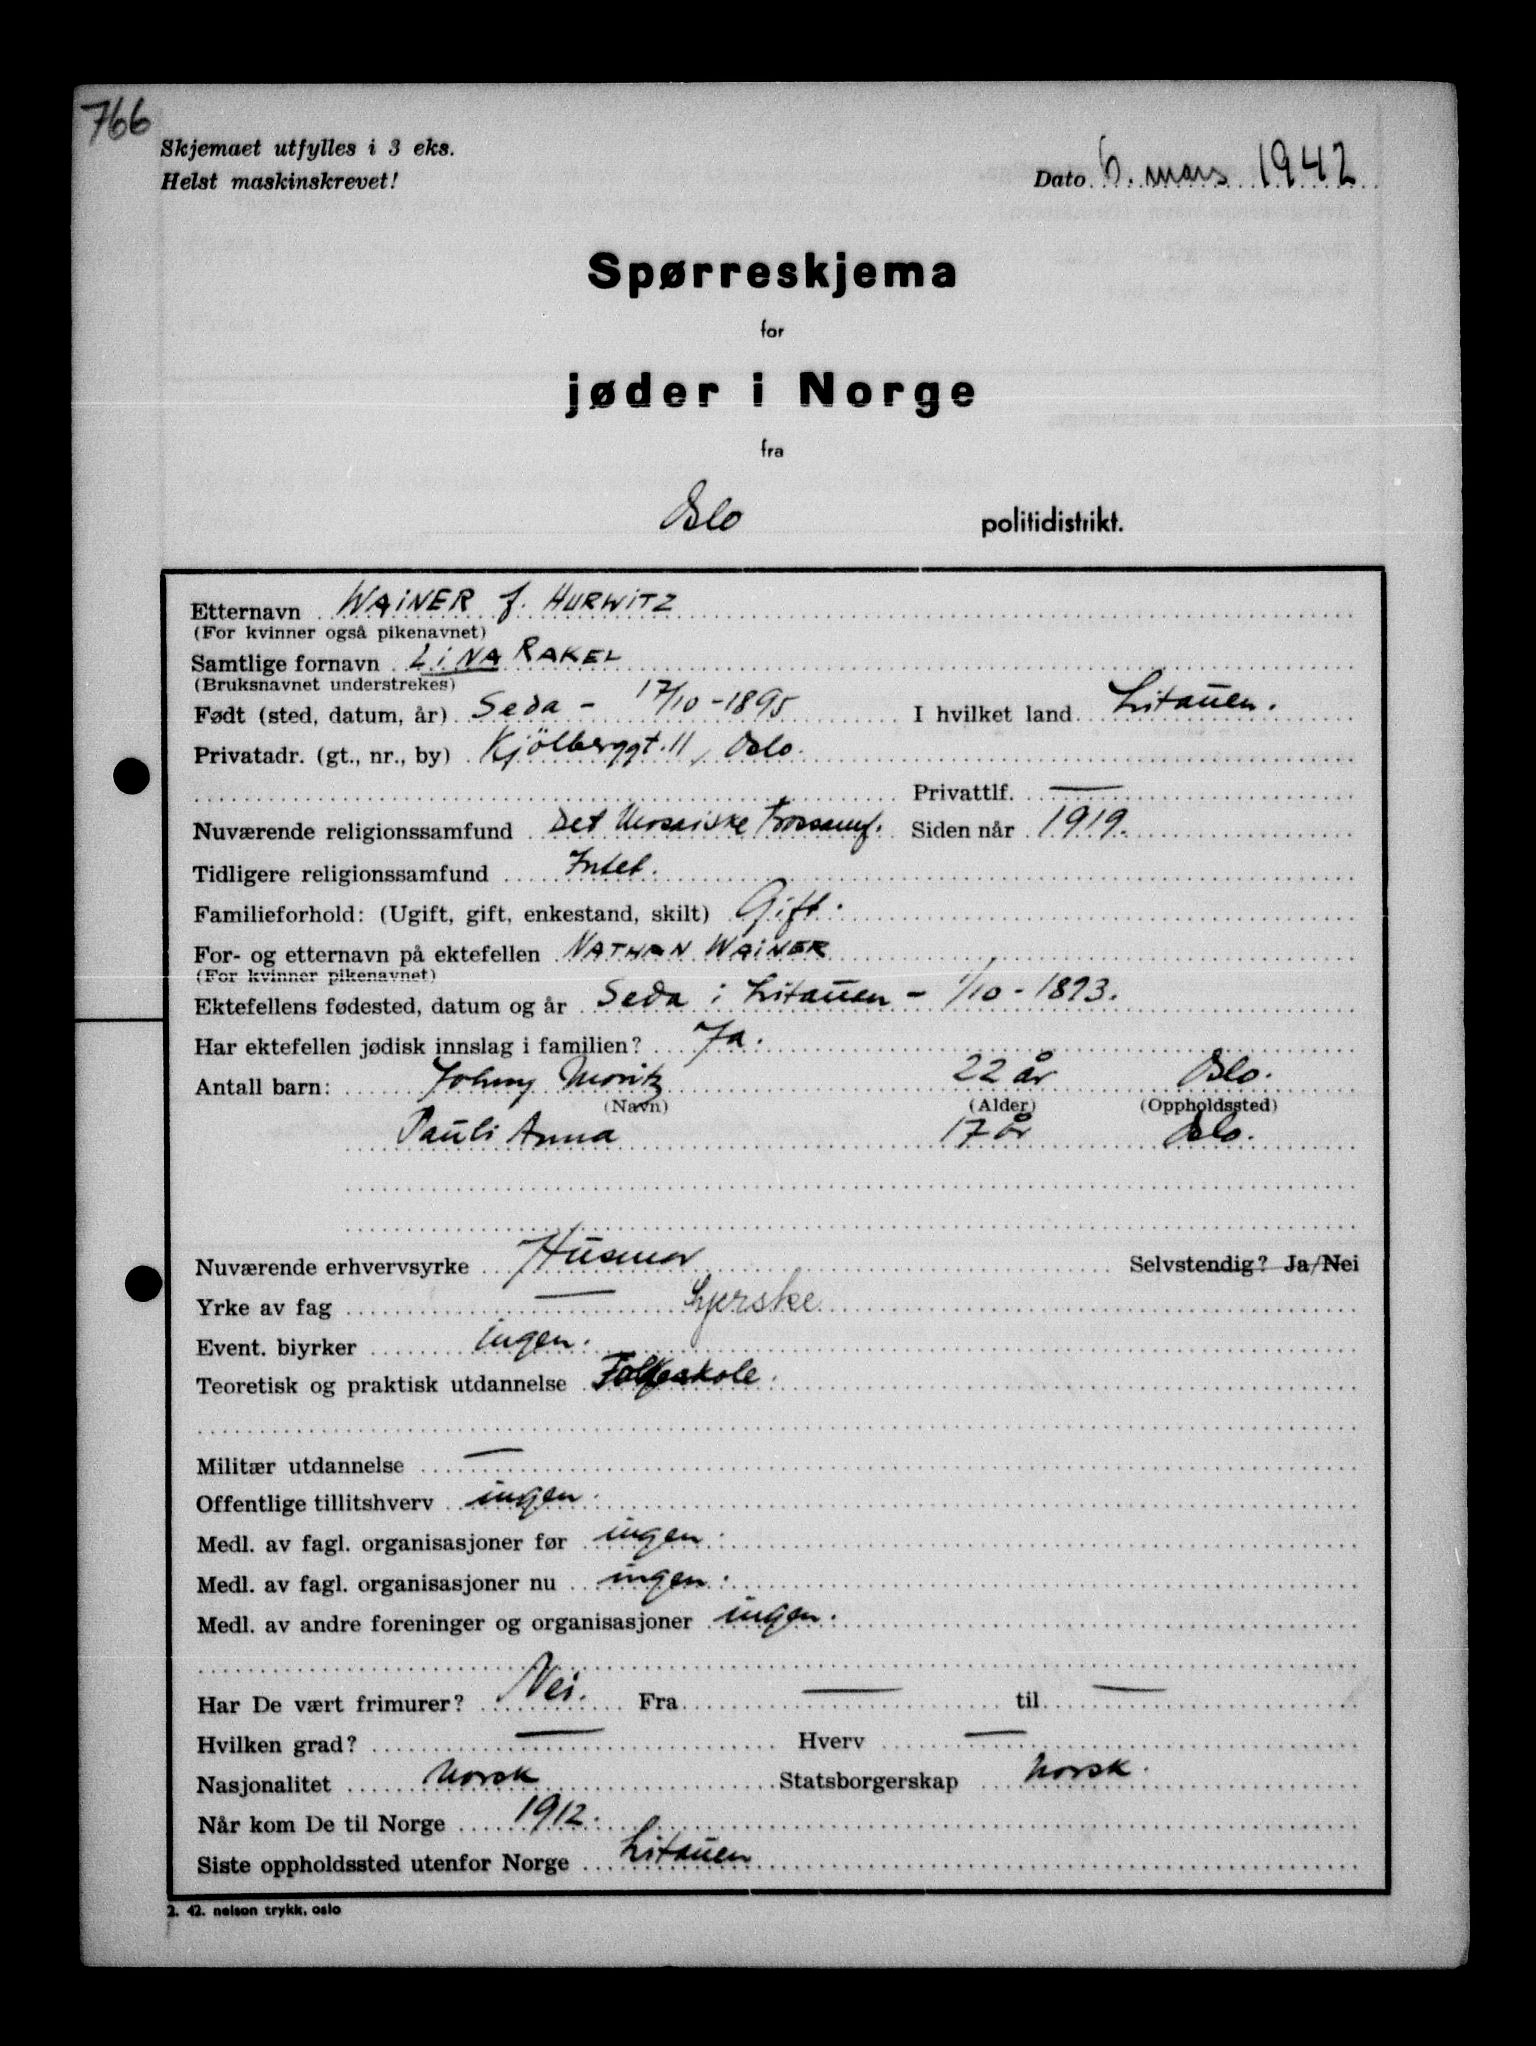 766
Skjemaet utfylles i 3 eks.
Helst maskinskrevet!
Dato 6. mars 1942
Spørreskjema
for
jøder i Norge
fra
Oslo politidistrikt.
Etternavn WAINER f. HURWITZ
(For kvinner også pikenavnet)
Samtlige fornavn LINA RAKEL
(Bruksnavnet understrekes)
Født (sted, datum, år) Seda - 17/10-1895 I hvilket land Litauen.
Privatadr. (gt., nr., by) Kjölberggt. 11, Oslo.
Privattlf. —
Nuværende religionssamfund Det Mosaiske Trossamf. Siden når 1919.
Tidligere religionssamfund Intet.
Familieforhold: (Ugift, gift, enkestand, skilt) Gift.
For- og etternavn på ektefellen NATHAN WAINER
(For kvinner pikenavnet)
Ektefellens fødested, datum og år Seda i Litauen - 1/10-1893.
Har ektefellen jødisk innslag i familien? Ja.
Antall barn: Johny Moritz 22 år Oslo.
(Navn) (Alder) (Oppholdssted)
Pauli Anna 17 år Oslo.
Nuværende erhvervsyrke Husmor Selvstendig? Ja/Nei
Yrke av fag — Syerske
Event. biyrker ingen.
Teoretisk og praktisk utdannelse Folkeskole.
Militær utdannelse —
Offentlige tillitshverv ingen.
Medl. av fagl. organisasjoner før ingen.
Medl. av fagl. organisasjoner nu ingen.
Medl. av andre foreninger og organisasjoner ingen.
Har De vært frimurer? Nei. Fra — til —
Hvilken grad? — Hverv —
Nasjonalitet Norsk Statsborgerskap Norsk.
Når kom De til Norge 1912.
Siste oppholdssted utenfor Norge Litauen
2. 42. nelson trykk, oslo